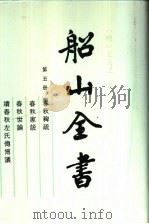 船山全書
第五册
春秋稗疏
春秋家説
春秋世論
續春秋左氏傳博議